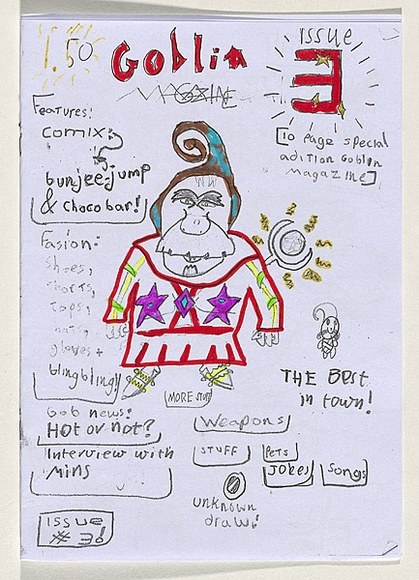 1.50
Goblin
MAGOZINE
ISSUE
3
[10 page special
adition Goblin
magazine]
Features:
comix:
bunjee jump
& Choco bar!
Fasion:
Shoes,
shorts,
tops,
hats,
gloves +
blingbling!
MORE STUFF
THE BEST
in town!
Gob news:
Hot or not?
Interview with
Mins
Weapons
STUFF
PETS
JOKES
Songs
unknown
draw!
ISSUE
# 3!